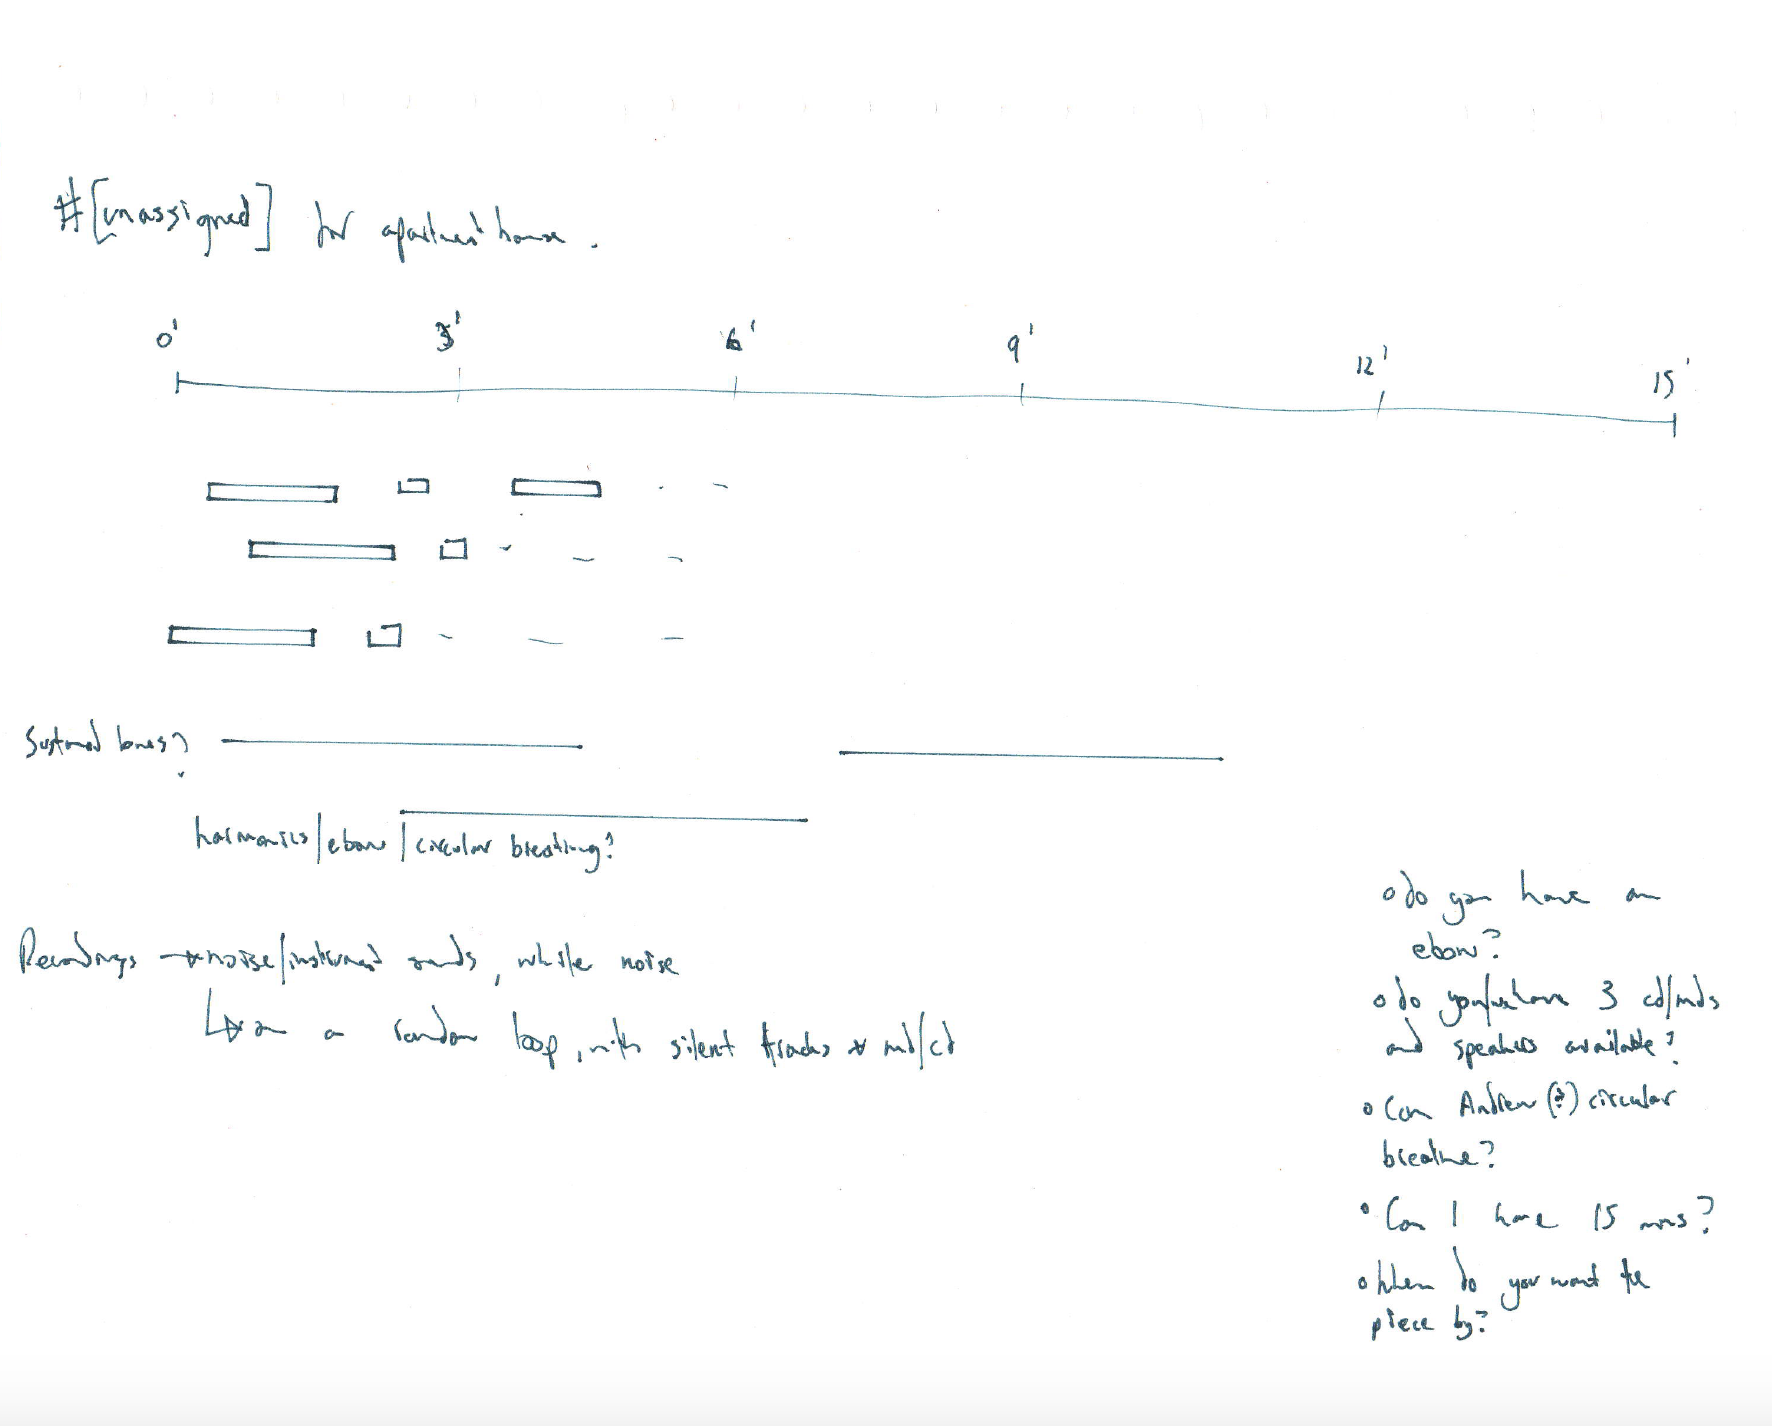 #[unassigned] for apartment house.
0' 3' 6' 9' 12' 15'
Sustained tones?
harmonics/ebow/circular breathing?
Recordings → noise/instrument sounds, white noise
↳ on a random loop, with silent tracks * md/cd
o do you have an
ebow?
o do you/we have 3 cd/mds
and speakers available?
o Can Andrew (?) circular
breathe?
o Can I have 15 mins?
o When do you want the
piece by?